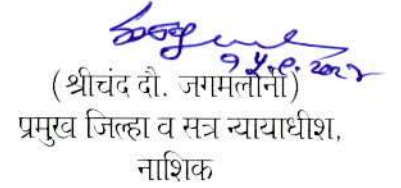 (श्रीचंद दौ. जगमलानी)
प्रमुख जिल्हा व सत्र न्यायाधीश,
नाशिक